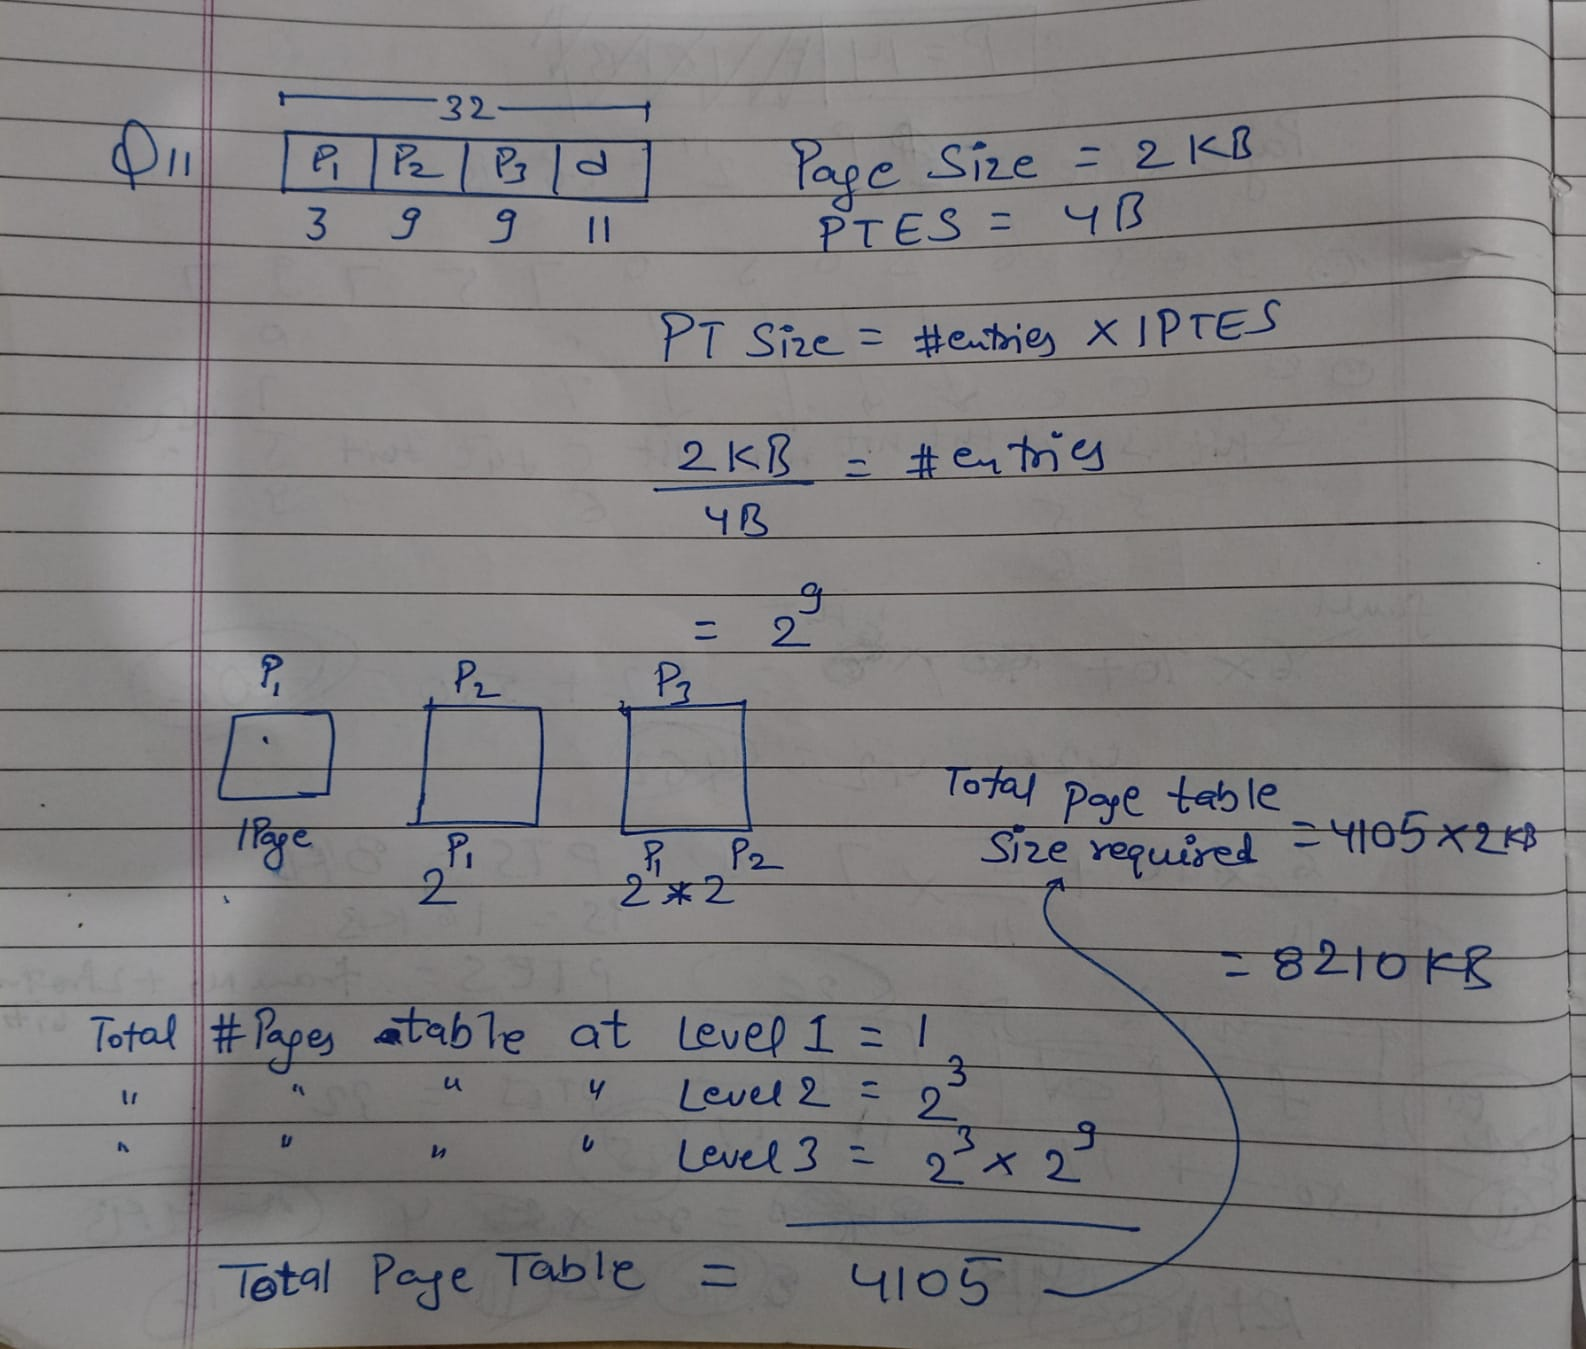 32
Q11 P₁ P₂ P₃ d Page Size = 2 KB
3 9 9 11 PTES = 4B
PT Size = #entries × 1PTES
2 KB / 4B = #entries
= 2⁹
P₁ P₂ P₃
1Page 2^P₁ 2^P₁ * 2^P₂
Total Page table
Size required = 4105 × 2KB
= 8210 KB
Total #Pages table at Level 1 = 1
" " " " Level 2 = 2³
" " " " Level 3 = 2³ × 2⁹
Total Page Table = 4105